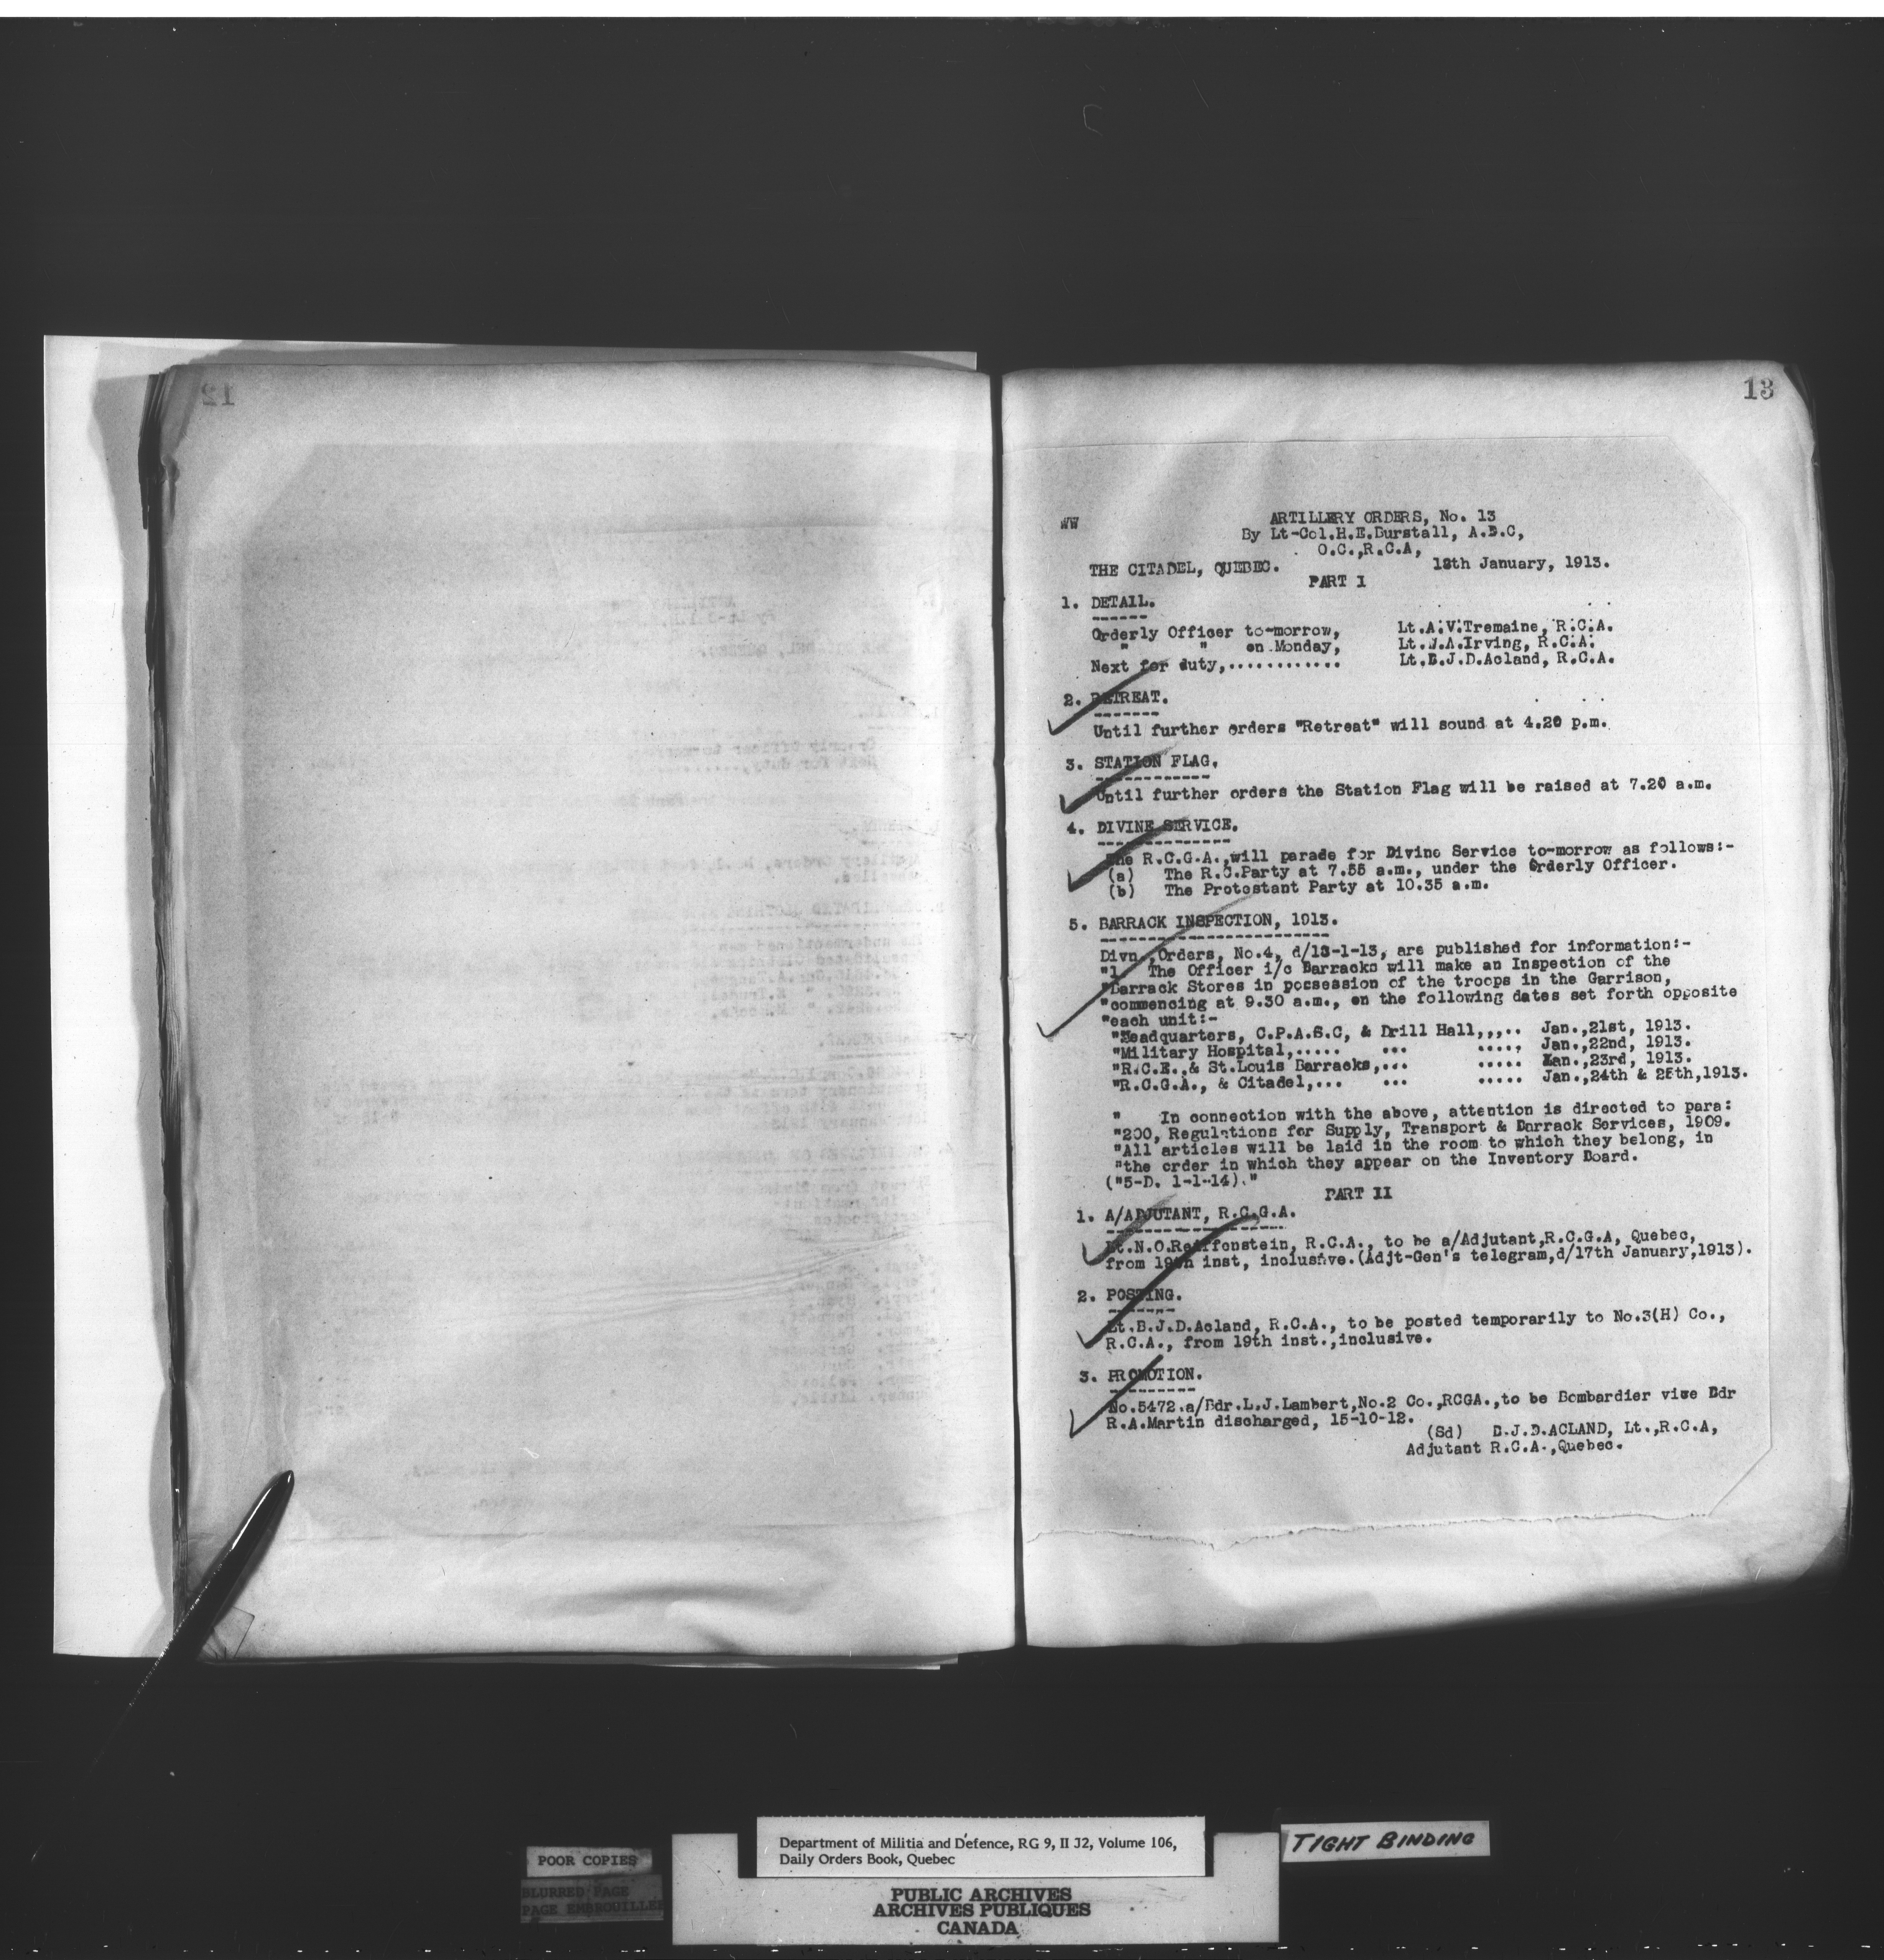 12
13
WW
ARTILLERY ORDERS, No. 13
By Lt-Col.H.E.Burstall, A.D.C,
O.C.,R.C.A,
THE CITADEL, QUEBEC. 18th January, 1913.
PART I
1. DETAIL.
Orderly Officer to-morrow, Lt.A.V.Tremaine, R.C.A.
" " on Monday, Lt.J.A.Irving, R.C.A.
Next for duty,............ Lt.B.J.D.Acland, R.C.A.
2. RETREAT.
Until further orders "Retreat" will sound at 4.20 p.m.
3. STATION FLAG.
Until further orders the Station Flag will be raised at 7.20 a.m.
4. DIVINE SERVICE.
The R.C.G.A.,will parade for Divine Service to-morrow as follows:-
(a) The R.C.Party at 7.55 a.m., under the Orderly Officer.
(b) The Protestant Party at 10.35 a.m.
5. BARRACK INSPECTION, 1913.
Divn.,Orders, No.4, d/18-1-13, are published for information:-
"1. The Officer i/c Barracks will make an Inspection of the
"Barrack Stores in possession of the troops in the Garrison,
"commencing at 9.30 a.m., on the following dates set forth opposite
"each unit:-
"Headquarters, C.P.A.S.C, & Drill Hall,,,.. Jan.,21st, 1913.
"Military Hospital,..... ... ....., Jan.,22nd, 1913.
"R.C.E.,& St.Louis Barracks,... ..... Jan.,23rd, 1913.
"R.C.G.A., & Citadel,... ... ..... Jan.,24th & 25th,1913.
" In connection with the above, attention is directed to para:
"200, Regulations for Supply, Transport & Barrack Services, 1909.
"All articles will be laid in the room to which they belong, in
"the order in which they appear on the Inventory Board.
("5-D. 1-1-14)."
PART II
1. A/ADJUTANT, R.C.G.A.
Lt.N.O.Reiffenstein, R.C.A., to be a/Adjutant,R.C.G.A, Quebec,
from 19th inst, inclusive.(Adjt-Gen's telegram,d/17th January,1913).
2. POSTING.
Lt.B.J.D.Acland, R.C.A., to be posted temporarily to No.3(H) Co.,
R.C.A., from 19th inst.,inclusive.
3. PROMOTION.
No.5472.a/Bdr.L.J.Lambert,No.2 Co.,RCGA.,to be Bombardier vice Bdr
R.A.Martin discharged, 15-10-12.
(Sd) B.J.D.ACLAND, Lt.,R.C.A,
Adjutant R.C.A.,Quebec.
Department of Militia and Defence, RG 9, II J2, Volume 106,
Daily Orders Book, Quebec
TIGHT BINDING
POOR COPIES
BLURRED PAGE
PAGE EMBROUILLEE
PUBLIC ARCHIVES
ARCHIVES PUBLIQUES
CANADA